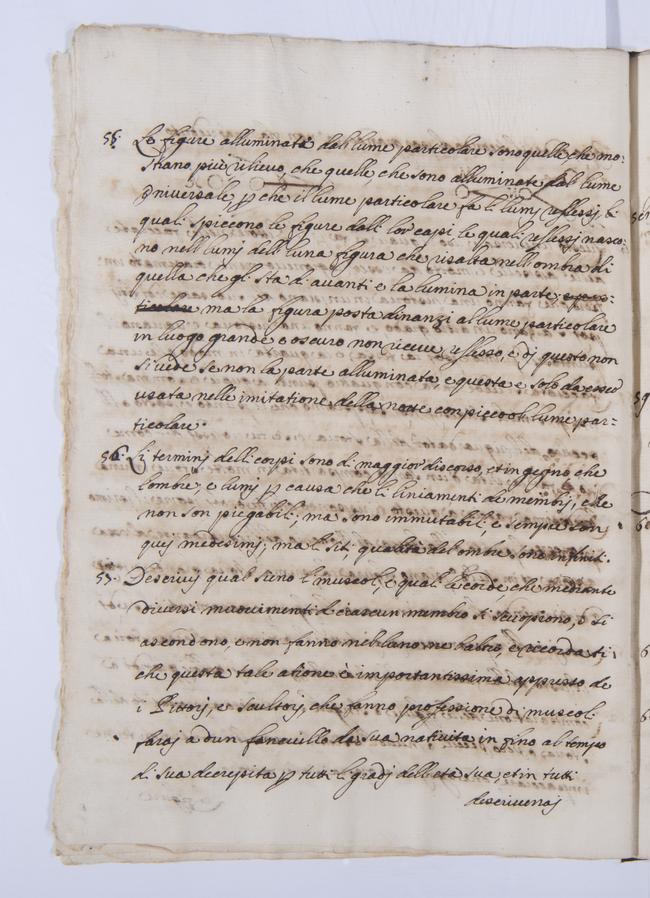 55. Le figure alluminate dal lume particolare sono quelle, che mo=
strano più rilievo, che quelle, che sono alluminate dal lume
universale, p che il lume particolare fa li lumi reflessi, li
quali spiccono le figure dalli lor capi le quali reflessi nasco=
no nelli lumi dell'una figura che risalta nell'ombra di
quella che gli sta davanti e la lumina in parte,
ticolare ma la figura posta dinanzi al lume particolare
in luogo grande e oscuro non riceve reflesso, e di questo non
si vede se non la parte alluminata, e questa e solo da esser
usata nelle imitatione della notte con piccool lume par=
ticolare.
56. Li termini delli corpi sono di maggior discorso, et ingegno che
l'ombre, e lumi p causa che li liniamenti de membri, che
non son piegabili, ma sono immutabili, e sempre son
quej medesimj, ma li siti, qualita del ombre sono infiniti.
57. Descrivi quali sieno l muscoli, e quali le corde che mediante
diversi muovimenti di ciascun membro si scuoprono, o si
ascondono, e non fanno ne l'uno ne l'altro, e ricordati
che questa tale atione è importantissima appresso de
i Pitorj, e Scultorj, che fanno professione di muscoli
faraj a d'un fanciullo da sua natività in fino al tempo
di sua decrepita p tutti li gradj dell'età sua, et in tutti
descriveraj